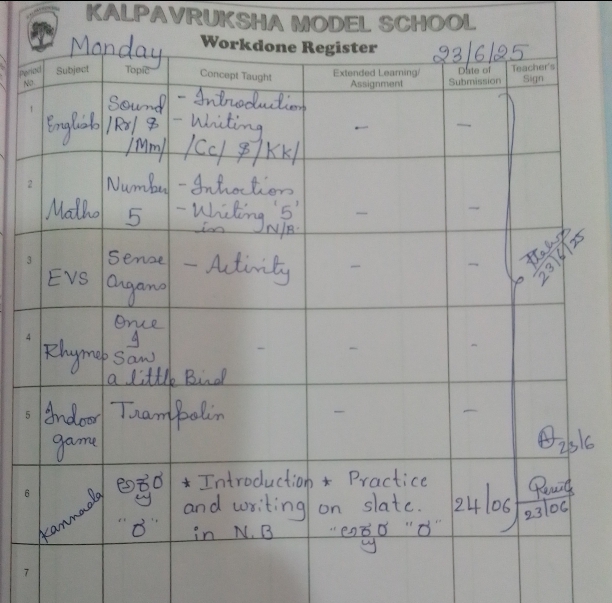 KALPAVRUKSHA MODEL SCHOOL
Workdone Register
Monday 23/6/25
Period No. Subject Topic Concept Taught Extended Learning/ Assignment Date of Submission Teacher's Sign
1 English Sound /Rr/ $ /Mm/ - Introduction - Writing /Cc/ $ /Kk/ - -
2 Maths Number 5 - Introction - Writing '5' in N/B. - -
3 EVS Sense Organs - Activity - - 23/6/25
4 Rhymes Once I Saw a little Bird - - -
5 Indoor game Trampolin - - 23/6
6 Kannada ಅಕ್ಷರ "ರ" * Introduction and writing in N.B * Practice on slate. "ಅಕ್ಷರ "ರ" 24/06 23/06
7